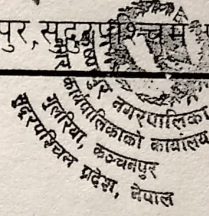 पुर, सुदूरपश्चिम
पुर नगरपालिका
कार्यपालिकाको कार्यालय
गुलरिया, कञ्चनपुर
सुदूरपश्चिम प्रदेश, नेपाल